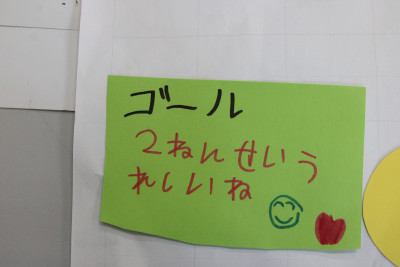 ゴール
2ねんせいう
れしいね